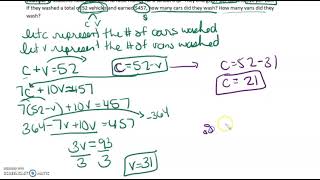 If they washed a total of 52 vehicles and earned $457, how many cars did they wash? How many vans did they wash?
let c represent the # of cars washed
let v represent the # of vans washed
c + v = 52
c = 52 - v
c = 52 - 31
c = 21
7c + 10v = 457
7(52-v) + 10v = 457
364 - 7v + 10v = 457
-364
3v = 93
3 3
v = 31